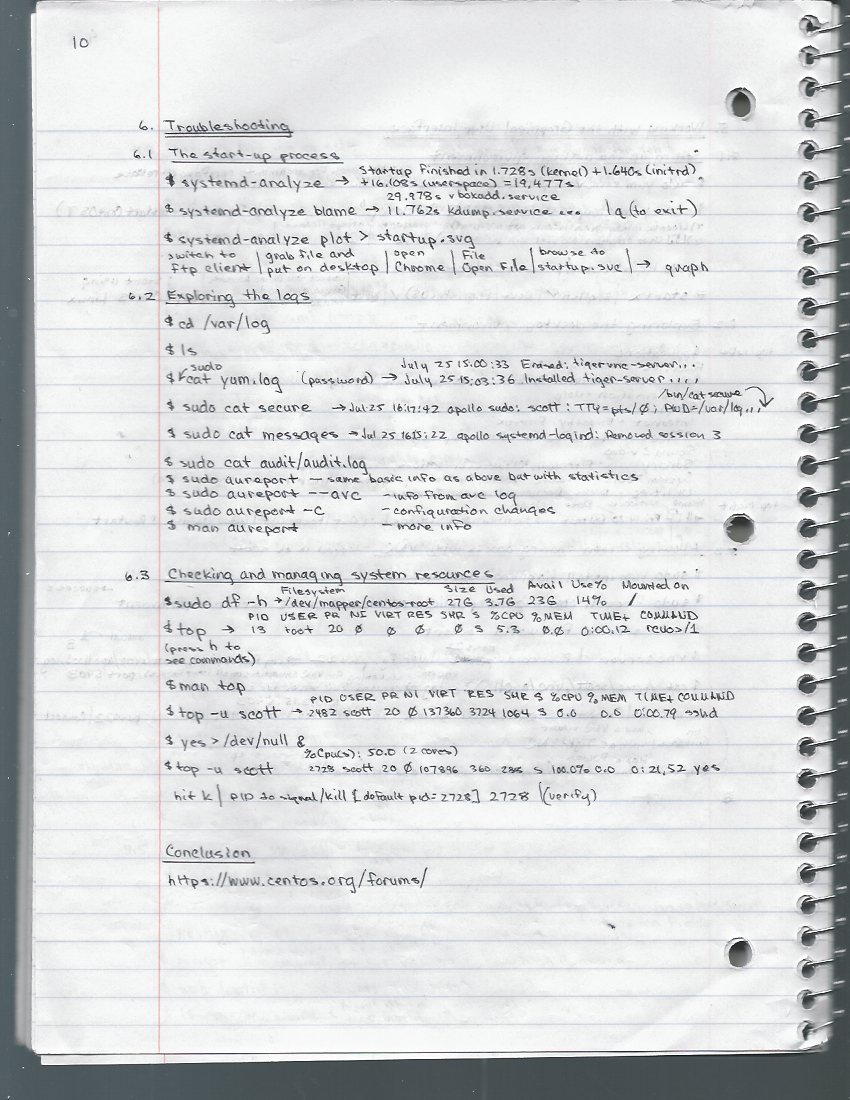 10
6. Troubleshooting
6.1 The start-up process
Startup finished in 1.728s (kernel) + 1.640s (initrd)
$ systemd-analyze → +16.108s (userspace) = 19.477s
29.978s vboxadd.service
$ systemd-analyze blame → 11.762s kdump.service ... | q (to exit)
$ systemd-analyze plot > startup.svg
switch to | grab file and | open | File | browse to
ftp client | put on desktop | Chrome | Open File | startup.svc | → graph
6.2 Exploring the logs
$ cd /var/log
$ ls
sudo July 25 15:00:33 Erased: tigervnc-server...
$ cat yum.log (password) → July 25 15:03:36 Installed tiger-server....
/bin/cat secure
$ sudo cat secure → Jul 25 16:17:42 apollo sudo: scott: TTY=pts/0; PWD=/var/log...
$ sudo cat messages → Jul 25 16:15:22 apollo systemd-logind: Removed session 3
$ sudo cat audit/audit.log
$ sudo aureport — same basic info as above but with statistics
$ sudo aureport --avc - info from avc log
$ sudo aureport -c - configuration changes
$ man aureport - more info
6.3 Checking and managing system resources
Filesystem Size Used Avail Use% Mounted on
$ sudo df -h → /dev/mapper/centos-root 27G 3.7G 23G 14% /
PID USER PR NI VIRT RES SHR S %CPU %MEM TIME+ COMMAND
$ top → 13 root 20 0 0 0 0 S 5.3 0.0 0:00.12 rcuos/1
(press h to
see commands)
$ man top
PID USER PR NI VIRT RES SHR S %CPU %MEM TIME+ COMMAND
$ top -u scott → 2482 scott 20 0 137360 3724 1064 S 0.0 0.6 0:00.79 sshd
$ yes > /dev/null &
%Cpu(s): 50.0 (2 cores)
$ top -u scott 2728 scott 20 0 107896 360 S 100.0% 0.0 0:21.52 yes
hit k | PID to signal/kill [default pid=2728] 2728 | (verify)
Conclusion
https://www.centos.org/forums/